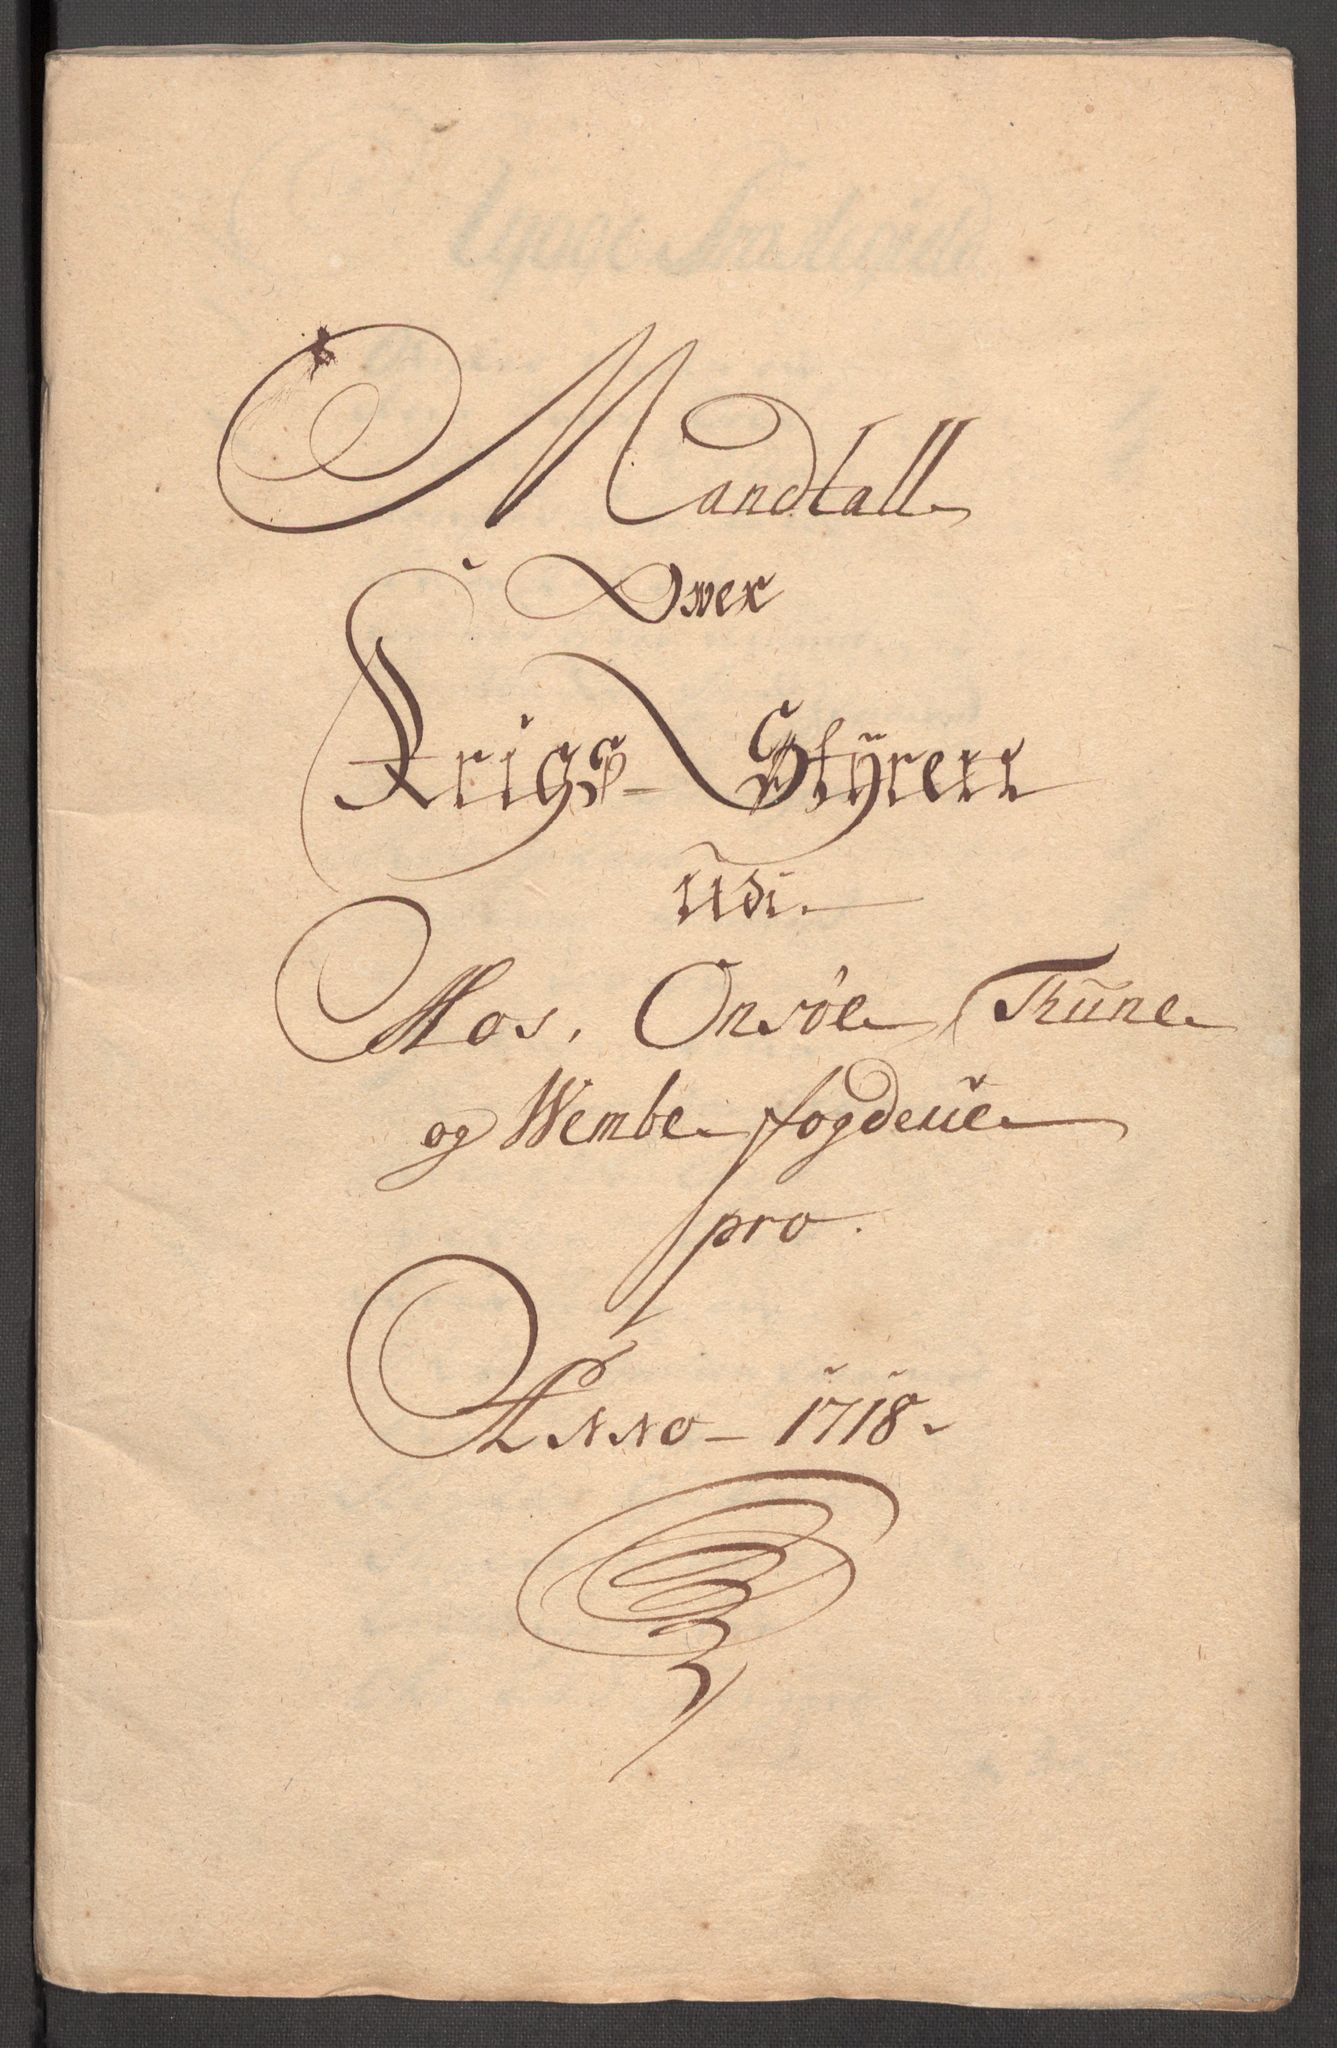 Mandtall
Over
Krigs-Styren
udi
Mos, Onsøe, Thune
og Wembe fogderie
pro.
Anno - 1718.